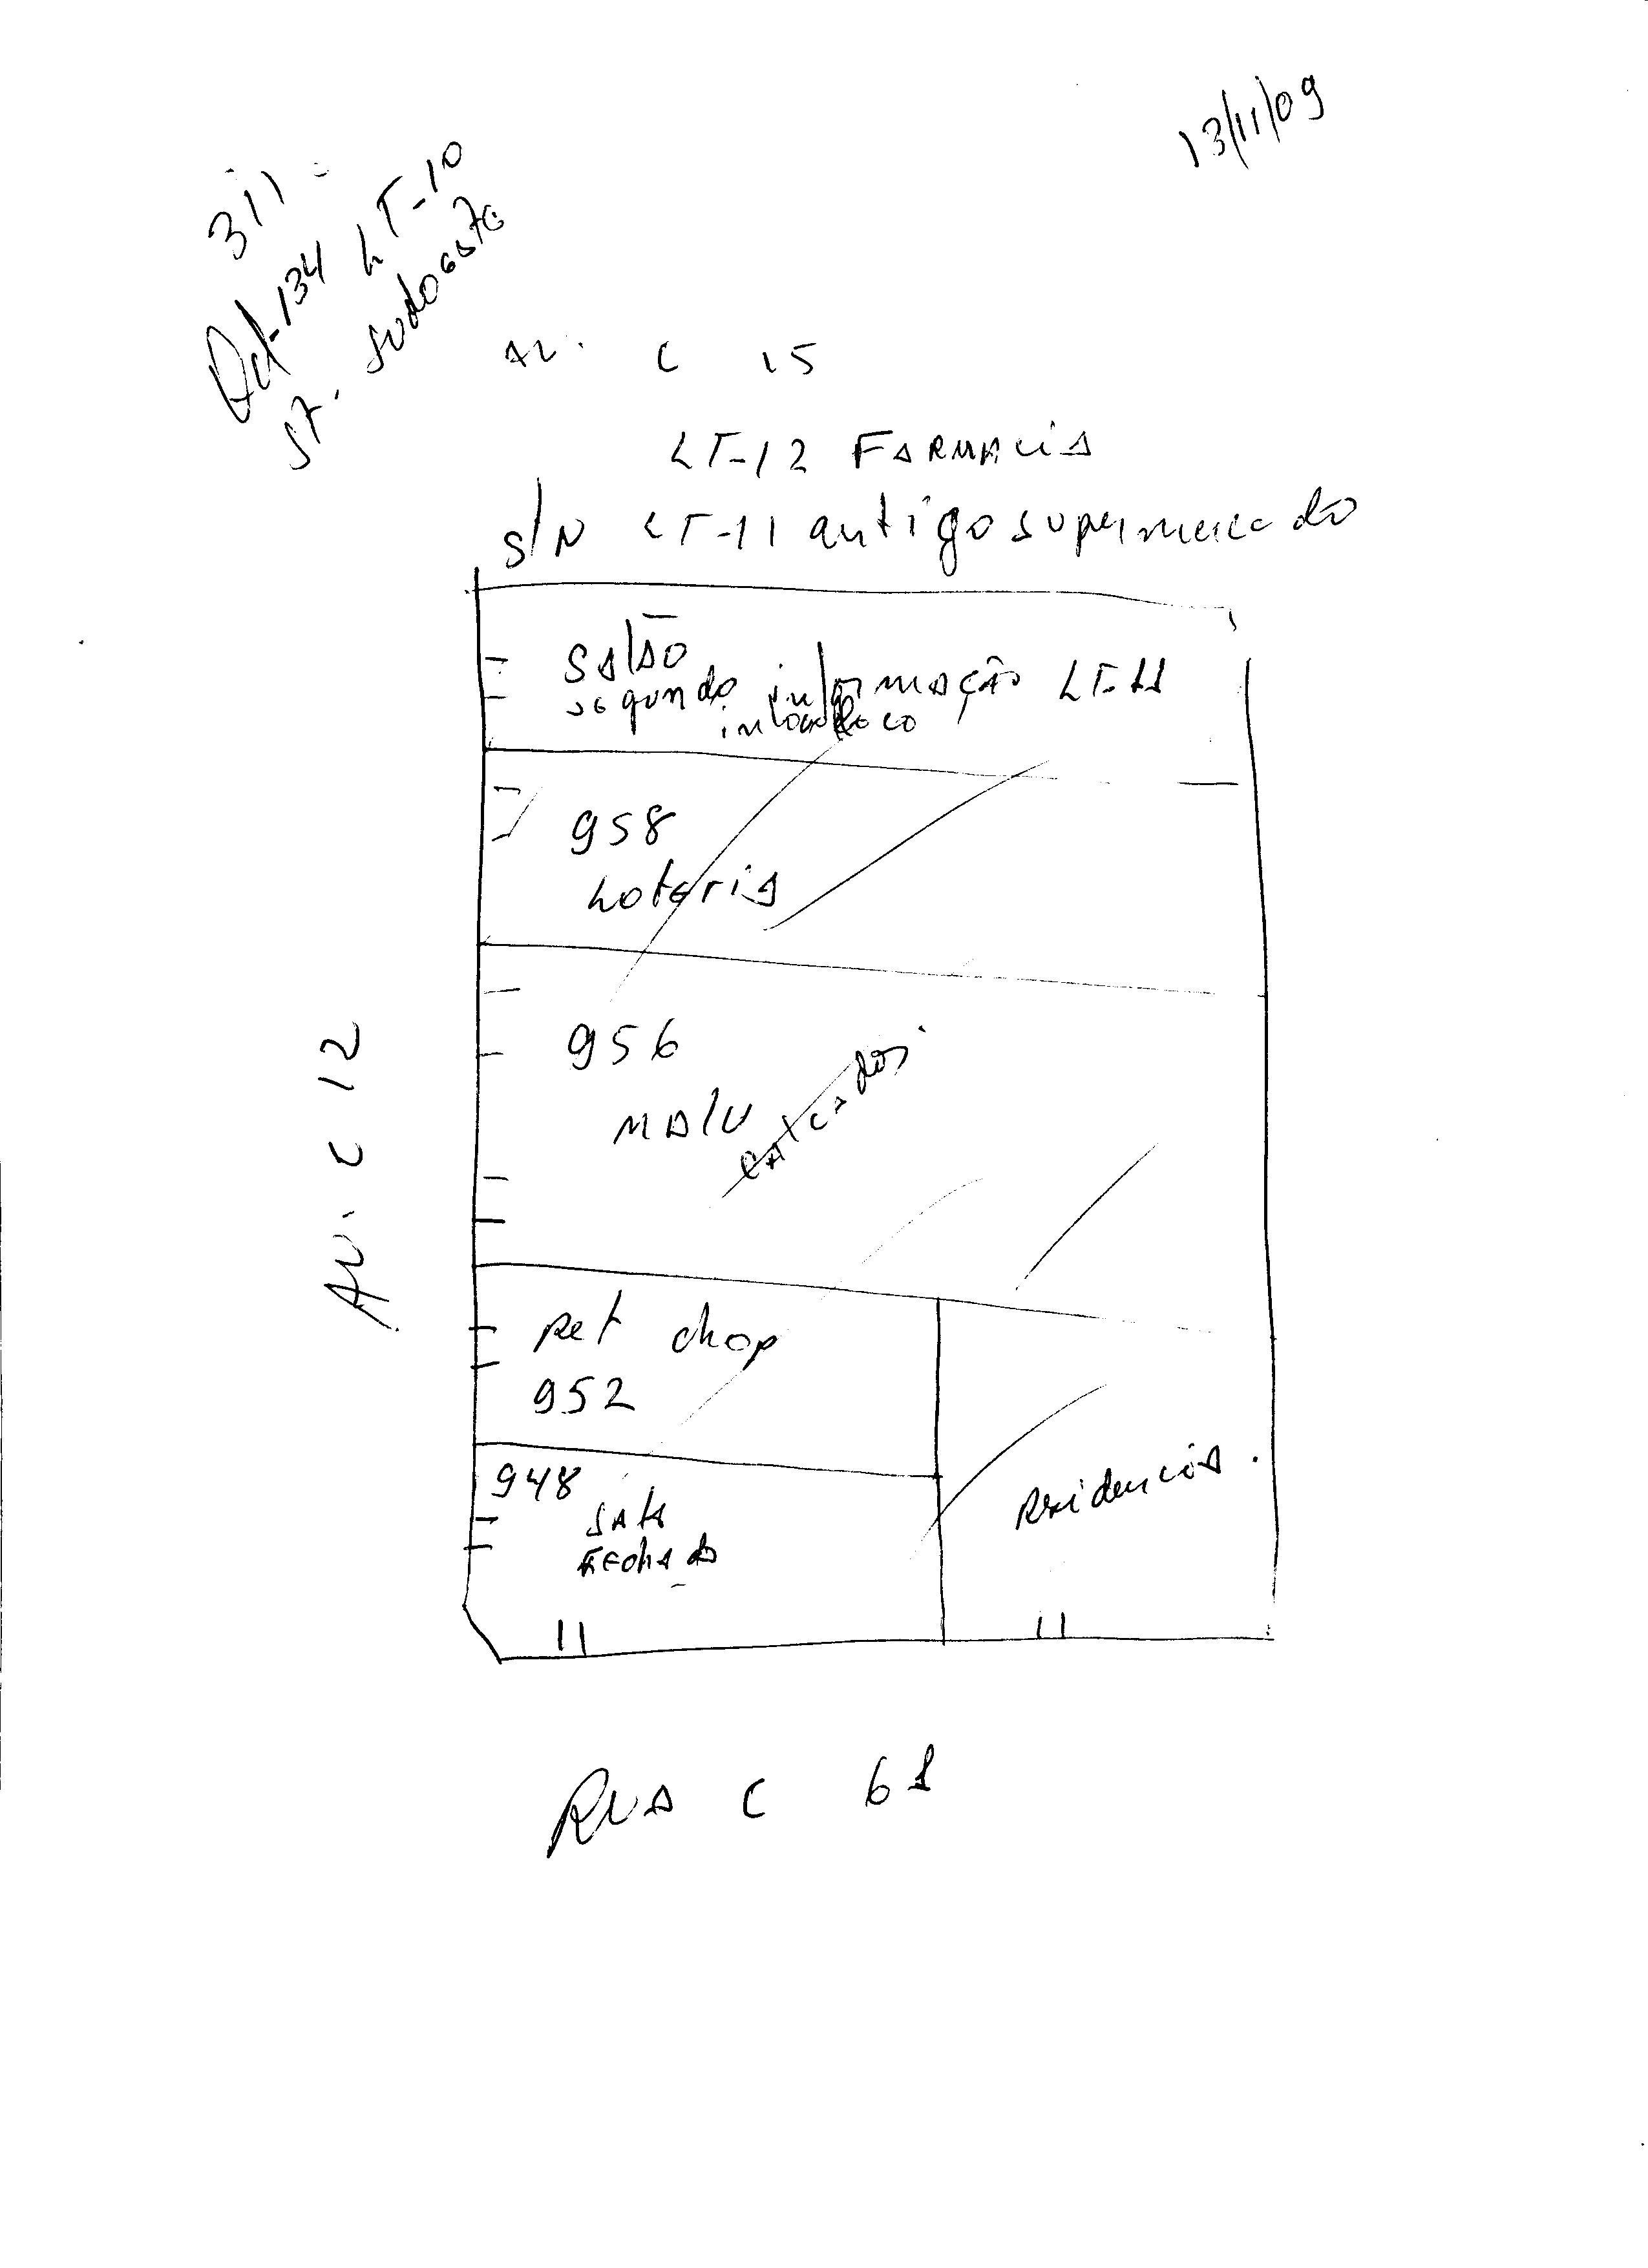 13/11/09
311
Qd-134 LT-10
ST. Sudoeste
AV. C 15
LT-12 FARMACIA
S/N LT-11 antigo supermercado
SALÃO
segundo informação LT-11
958
Loteria
956
MALU
calcados
Pet chop
952
948
SALA
FECHADA
Residencia.
AV. C 12
RUA C 61